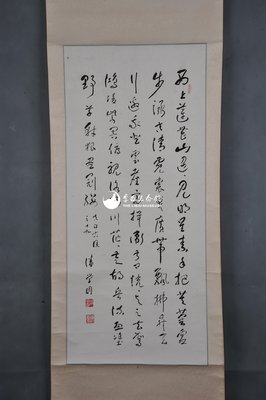 西上蓮花山迢迢見明星素手把芙蓉虛
步躡太清霓裳曳廣帶飄拂昇天
行邀我登雲臺高揖衛叔卿恍恍與之去駕
鴻凌紫冥俯視洛陽川茫茫走胡兵流血塗
野草豺狼盡冠纓
李白纪念馆
THE LIBAI MEMORIAL